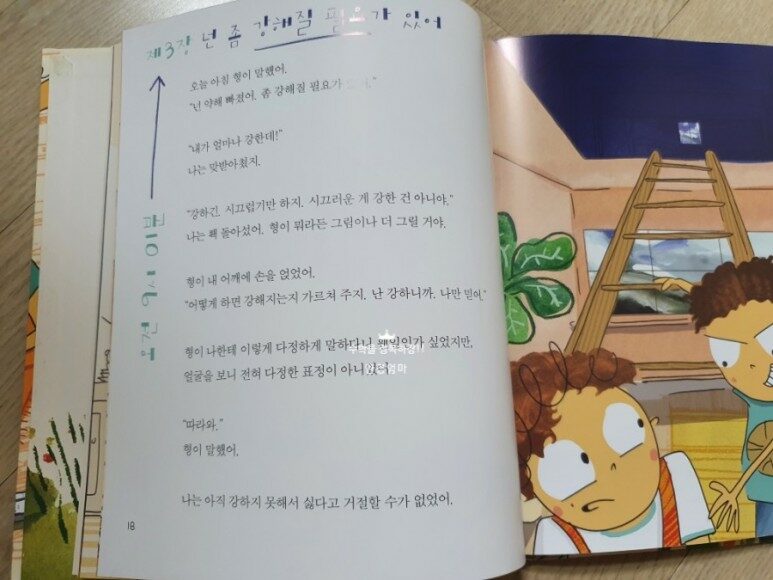 제3장 넌 좀 강해질 필요가 있어
오전 9시 01분
오늘 아침 형이 말했어.
"넌 약해 빠졌어. 좀 강해질 필요가 있어."
"내가 얼마나 강한데!"
나는 맞받아쳤지.
"강하긴. 시끄럽기만 하지. 시끄러운 게 강한 건 아니야."
나는 홱 돌아섰어. 형이 뭐라든 그림이나 더 그릴 거야.
형이 내 어깨에 손을 얹었어.
"어떻게 하면 강해지는지 가르쳐 주지. 난 강하니까. 나만 믿어."
형이 나한테 이렇게 다정하게 말하다니 웬일인가 싶었지만,
얼굴을 보니 전혀 다정한 표정이 아니었어.
"따라와."
형이 말했어.
나는 아직 강하지 못해서 싫다고 거절할 수가 없었어.
18